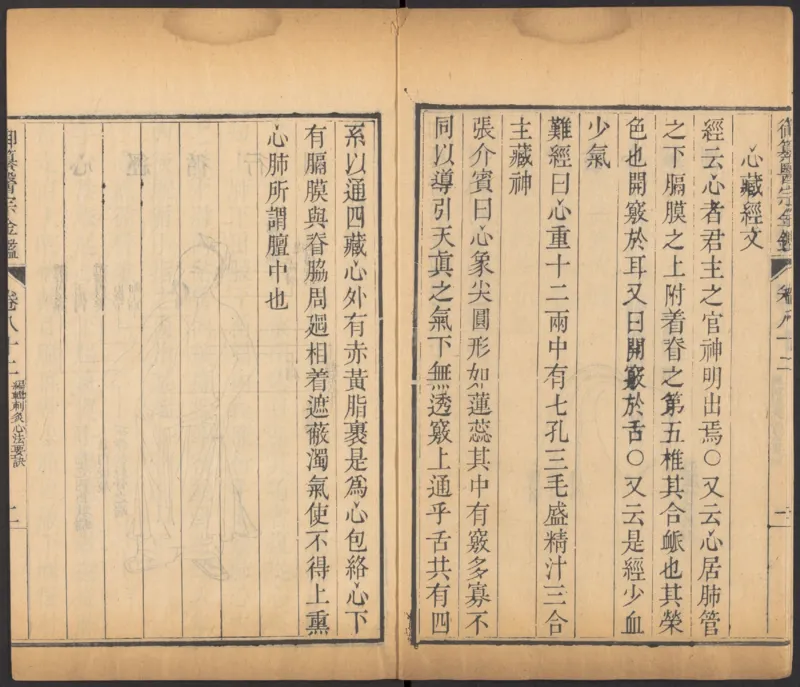 御纂醫宗金鑑 卷八十二 二
心藏經文
經云心者君主之官神明出焉○又云心居肺管
之下膈膜之上附着脊之第五椎其合䘑也其榮
色也開竅於耳又曰開竅於舌○又云是經少血
少氣
難經曰心重十二兩中有七孔三毛盛精汁三合
主藏神
張介賓曰心象尖圓形如蓮蕊其中有竅多寡不
同以導引天眞之氣下無透竅上通乎舌共有四
系以通四藏心外有赤黃脂裹是爲心包絡心下
有膈膜與脊脇周廻相着遮蔽濁氣使不得上熏
心肺所謂膻中也
御纂醫宗金鑑 卷八十二 編輯刺灸心法要訣 二